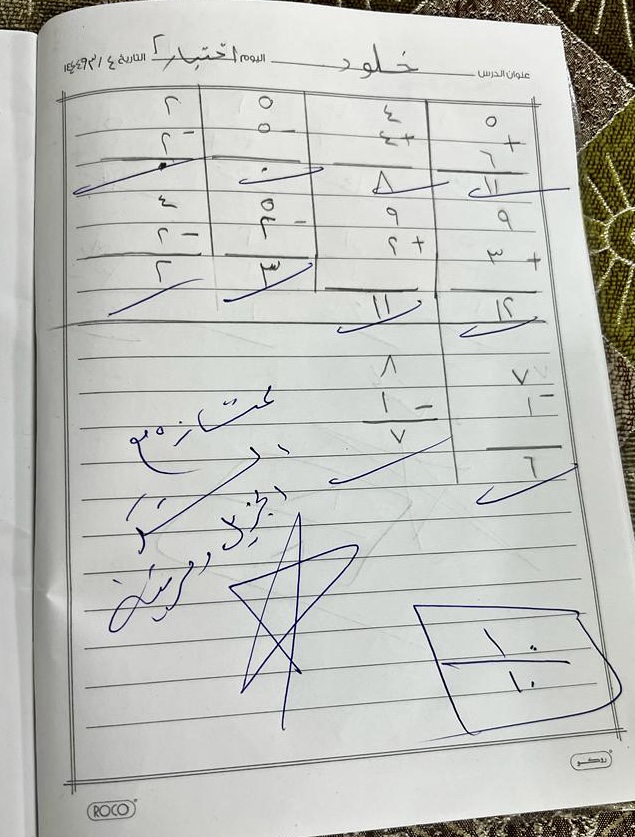 عنوان الدرس خلود اليوم اختبار ٢ التاريخ ٤ / ٣ / ١٤٤٦هـ
٥ ٤ ٥ ٢
+ ٦ + ٤ - ٥ - ٢
١١ ٨ ٠ ٠
٩ ٩ ٥ ٤
+ ٣ + ٢ - ٢ - ٢
١٢ ١١ ٣ ٢
٧ ٨
- ١ - ١
٦ ٧
ممتازه مع
الشكر
الجزيل
١٠
١٠
روكو
ROCO